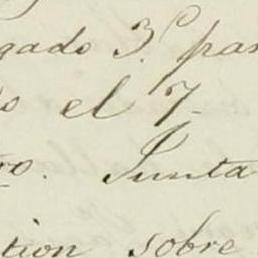 gado 3.º par
o el 7
ro. Junta
tion sobre